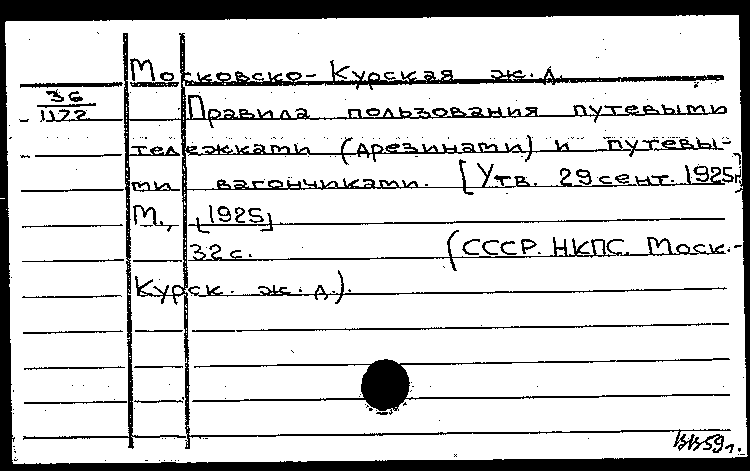 Московско-Курская ж.д.
36
1172
Правила пользования путевыми
тележками (дрезинами) и путевы-
ми вагончиками. [Утв. 29 сент. 1925г.]
М., [1925]
32 с. (СССР. НКПС. Моск.-
Курск. ж.д.).